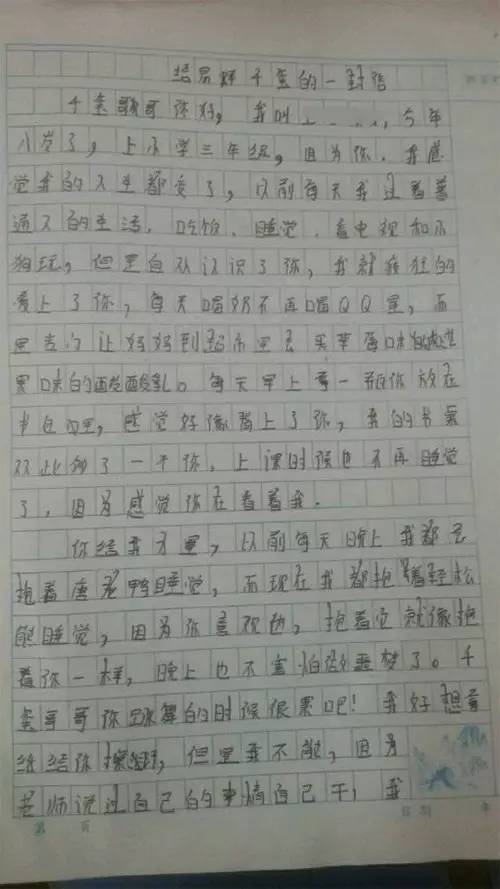 给易烊千玺的一封信
千玺歌哥你好,我叫 今年
八岁了,上小学三年级,因为你,我感
觉我的人生都变了,以前每天我过着普
通人的生活,吃饭、睡觉、看电视和小
狗玩,但是自从认识了你,我就疯狂的
爱上了你,每天喝奶不再喝QQ星,而
是去让妈妈到超市里去买苹果味的
果味的酸酸乳。每天早上拿一瓶你放在
书包里,感觉好像背上了你,我的书桌
从此多了一个你,上课时候也不再睡觉
了,因为感觉你在看着我.
你给我力量,以前每天晚上我都会
抱着唐老鸭睡觉,而现在我都抱着轻松
熊睡觉,因为你喜欢他,抱着它就像抱
着你一样,晚上也不害怕做噩梦了。千
玺哥哥你跳舞的时候很累吧!我好想拿
纸给你擦,但是我不能,因为
老师说过自己的事情自己干,我
第 页